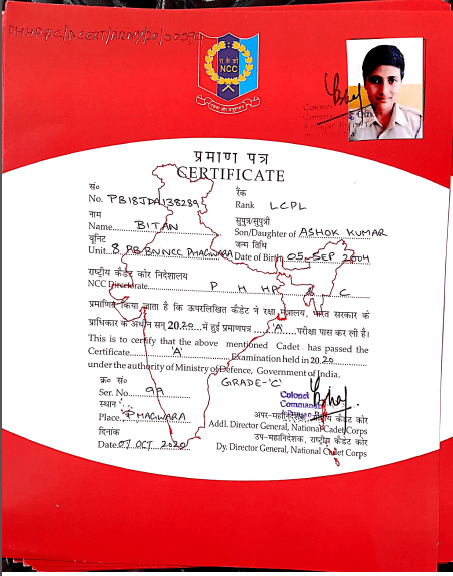 रा.कै.को
NCC
एकता और अनुशासन
प्रमाण पत्र
CERTIFICATE
सं०
No. PB18JDA138289
रैंक
Rank LCPL
नाम
Name BITAN
सुपुत्र/सुपुत्री
Son/Daughter of ASHOK KUMAR
यूनिट
Unit 8 PB BN NCC PHAGWARA
जन्म तिथि
Date of Birth 05-SEP 2004
राष्ट्रीय कैडेट कोर निदेशालय
NCC Directorate P H HP & C
प्रमाणित किया जाता है कि ऊपरलिखित कैडेट ने रक्षा मंत्रालय, भारत सरकार के
प्राधिकार के अधीन सन् 2020 में हुई प्रमाणपत्र 'A' परीक्षा पास कर ली है।
This is to certify that the above mentioned Cadet has passed the
Certificate 'A' Examination held in 2020
under the authority of Ministry of Defence, Government of India.
GRADE-'C'
क्र० सं०
Ser. No. 99
स्थान
Place PHAGWARA
दिनांक
Date 07 OCT 2020
Colonel
अपर-महानिदेशक, राष्ट्रीय कैडेट कोर
Addl. Director General, National Cadet Corps
उप-महानिदेशक, राष्ट्रीय कैडेट कोर
Dy. Director General, National Cadet Corps